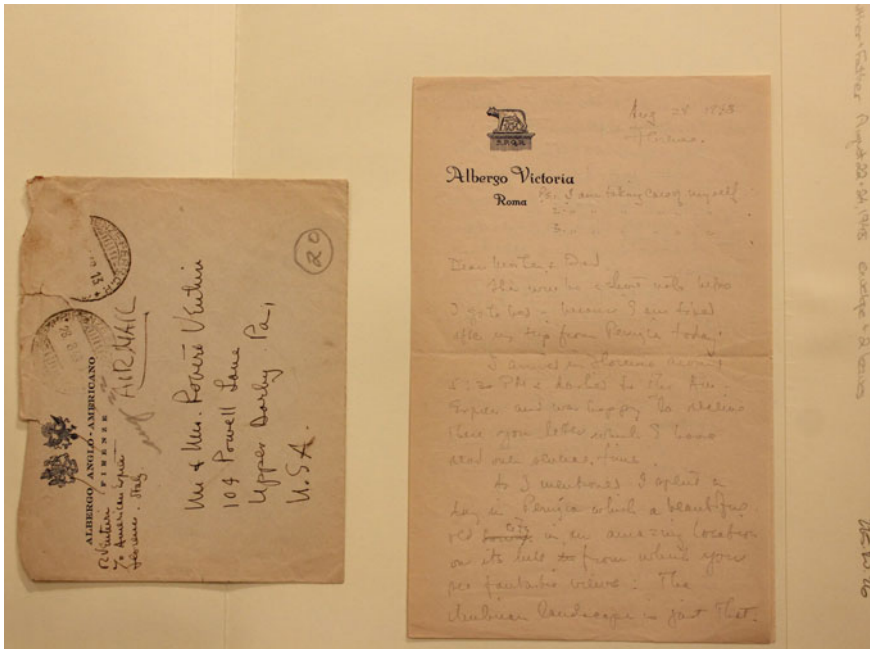 ALBERGO ANGLO-AMERICANO
FIRENZE
R Venturi
℅ American Express
Florence. Italy.
AIRMAIL
20
Mr & Mrs. Robert Venturi
104 Powell Lane
Upper Darby Pa,
U.S.A.
S.P.Q.R.
Albergo Victoria
Roma
Aug 28 1948
Florence.
Ps. I am taking care of myself
2. " " " " "
3. " " " " "
Dear Mother & Dad
This will be a short note before
I go to bed - because I am tired
after my trip from Perugia today.
I arrived in Florence around
5:20 PM & dashed to the Am
Express and was happy to receive
there your letter which I have
read over several times
As I mentioned I spent a
day in Perugia which a beautiful
old town city in an amazing location
on its hill from which you
see fantastic views: The
Umbrian landscape is just that.
Mother & Father August 22-28, 1948 envelope + 2 pages